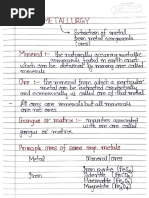 METALLURGY
Extraction of metal
from metal compounds
(ores)
Mineral :- The naturally occurring metallic
compounds found in earth crust
which can be obtained by mining are called
mineral
Ore :- The mineral from which a particular
metal can be extracted conveniently
and economically is called ore of that metal
- All ores are minerals but all minerals
are not ores
Gangue or matrix :- Impurities associated
with ores are called
gangue or matrix.
Principle ores of some imp metals
Metal Mineral (ores)
Iron Iron pyrite (FeS₂)
Siderite (FeCO₃)
Haematite (Fe₂O₃)
Magnetite (Fe₃O₄)